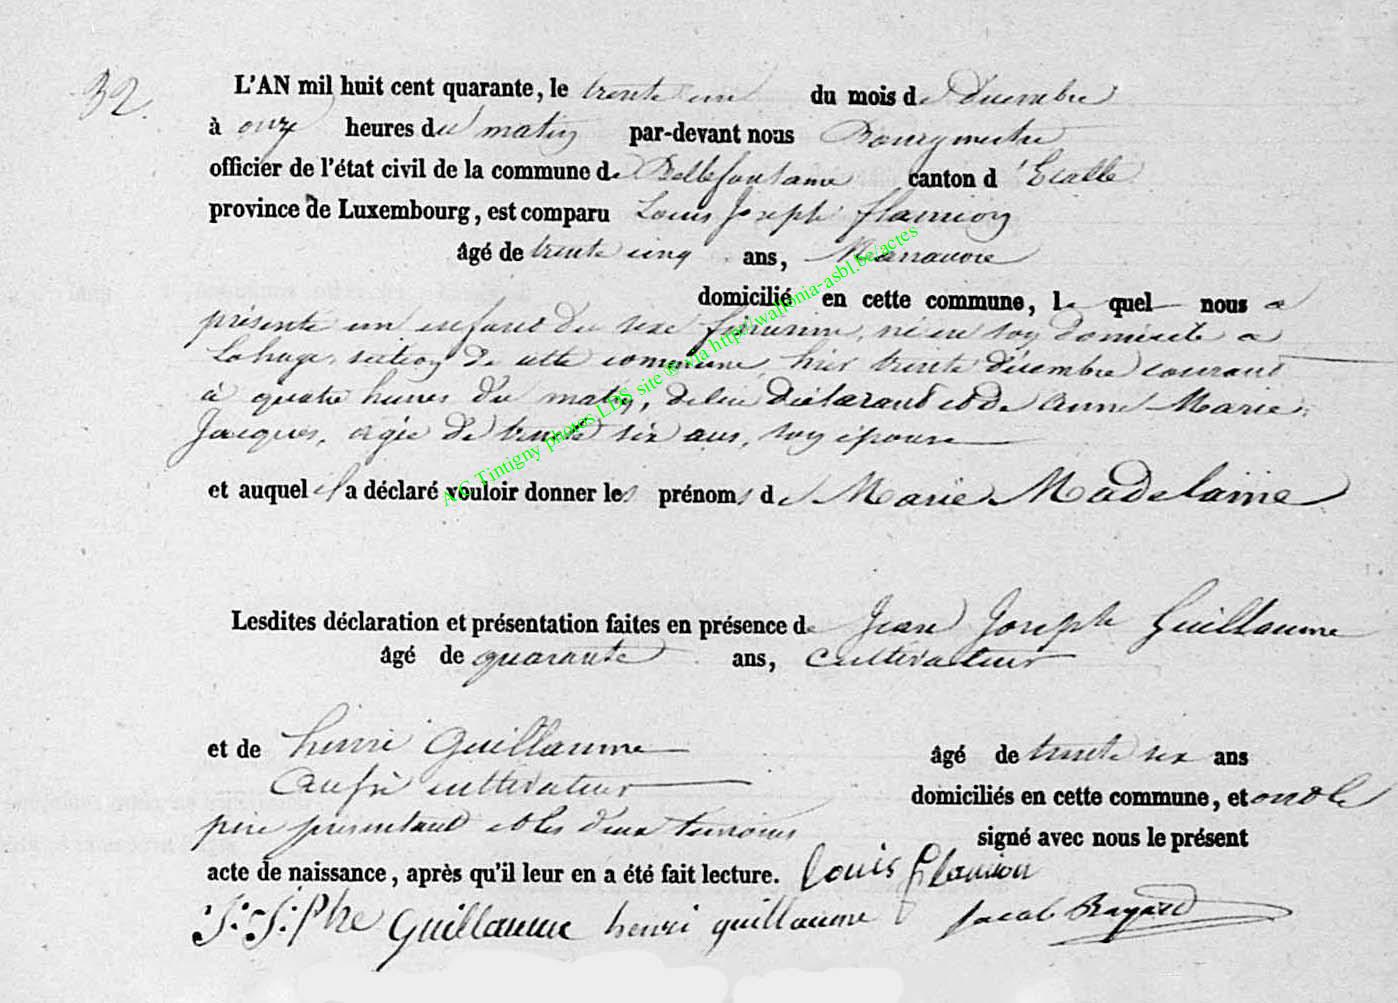 32.
L'AN mil huit cent quarante, le trente un du mois de Décembre
à onze heures du matin par-devant nous Bourgmestre
officier de l'état civil de la commune de Bellefontaine canton d'Etalle
province de Luxembourg, est comparu Louis Joseph flamion
âgé de trente cinq ans, Manœuvre
domicilié en cette commune, le quel nous a
présenté un enfant du sexe féminin, né en son domicile a
Lahage, section de cette commune, hier trente décembre courant
à quatre heures du matin, de lui déclarant et de Anne Marie
Jacques, agée de trente six ans, son épouse
et auquel il a déclaré vouloir donner les prénoms de Marie Madelaine
Lesdites déclaration et présentation faites en présence de Jean Joseph Guillaume
âgé de quarante ans, cultivateur
et de henri Guillaume âgé de trente six ans
aussi cultivateur domiciliés en cette commune, et ont le
père présentant et les deux temoins signé avec nous le présent
acte de naissance, après qu'il leur en a été fait lecture. Louis flamion
J: J:Phe Guillaume henri guillaume Jacob
A.C Tintigny photos LDS site © via http://wallonia-asbl.be/actes